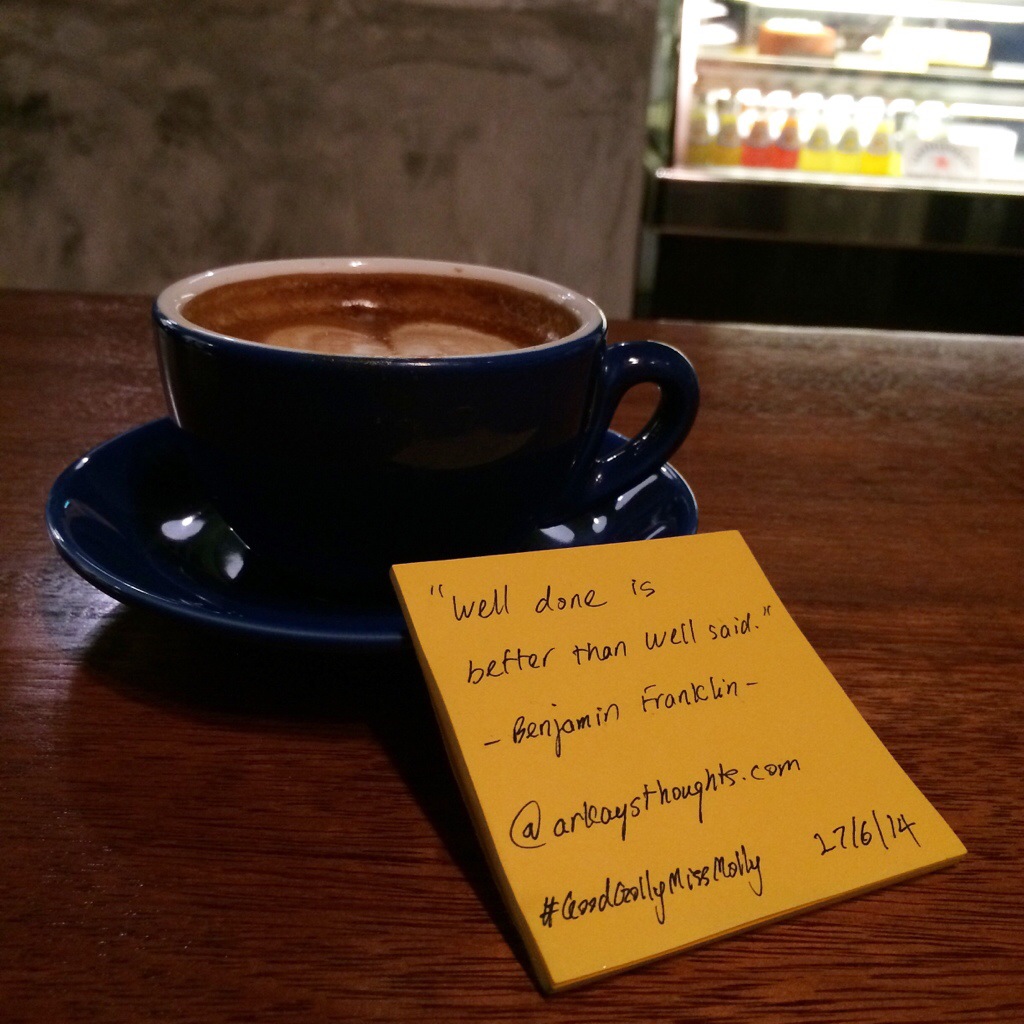 "Well done is
better than well said."
- Benjamin Franklin -
@arkaysthoughts.com
#GoodGollyMissMolly 27/6/14